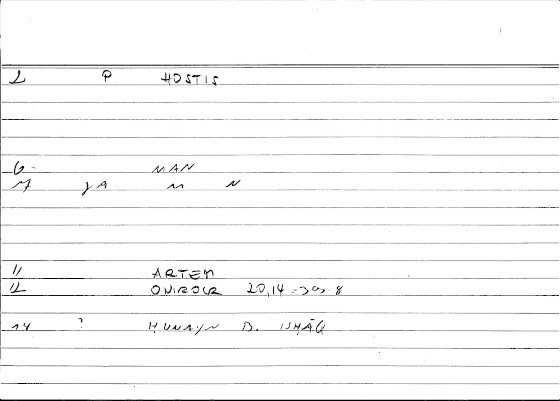 2 P HOSTIS
6 MAN
7 JA M N
11 ARTEM
12 ONIROCR 20,14
14 ? ḤUNAYN B. ISḤĀQ